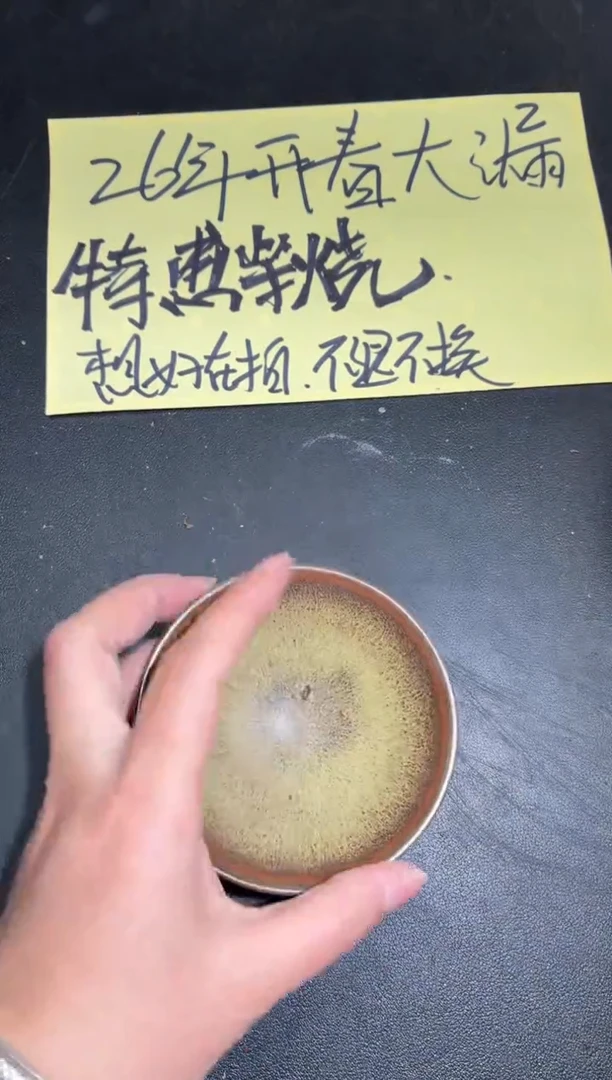 26年开春大漏
特惠柴烧.
想好在拍.不退不换